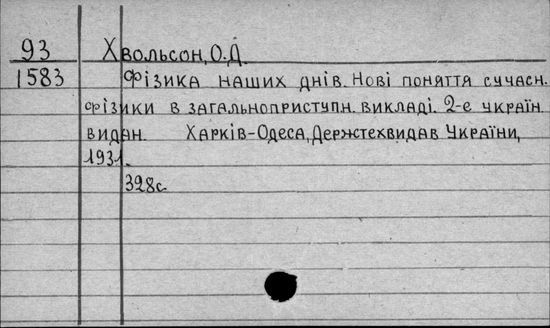 93 Хвольсон, О.Д.
1583 Фізика наших днів. Нові поняття сучасн.
фізики в загальноприступн. викладі. 2-е україн.
видан. Харків-Одеса, Держтехвидав України,
1931.
328с.